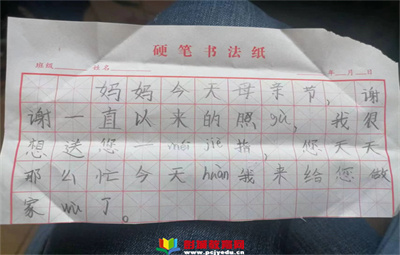 硬笔书法纸
班级 姓名 年 月 日
妈妈今天母亲节，谢
谢一直以来的照gù，我很
想送您一 jiè指，您天天
那么忙今天huàn我来给您做
家wù了。
www.pcjyedu.cn